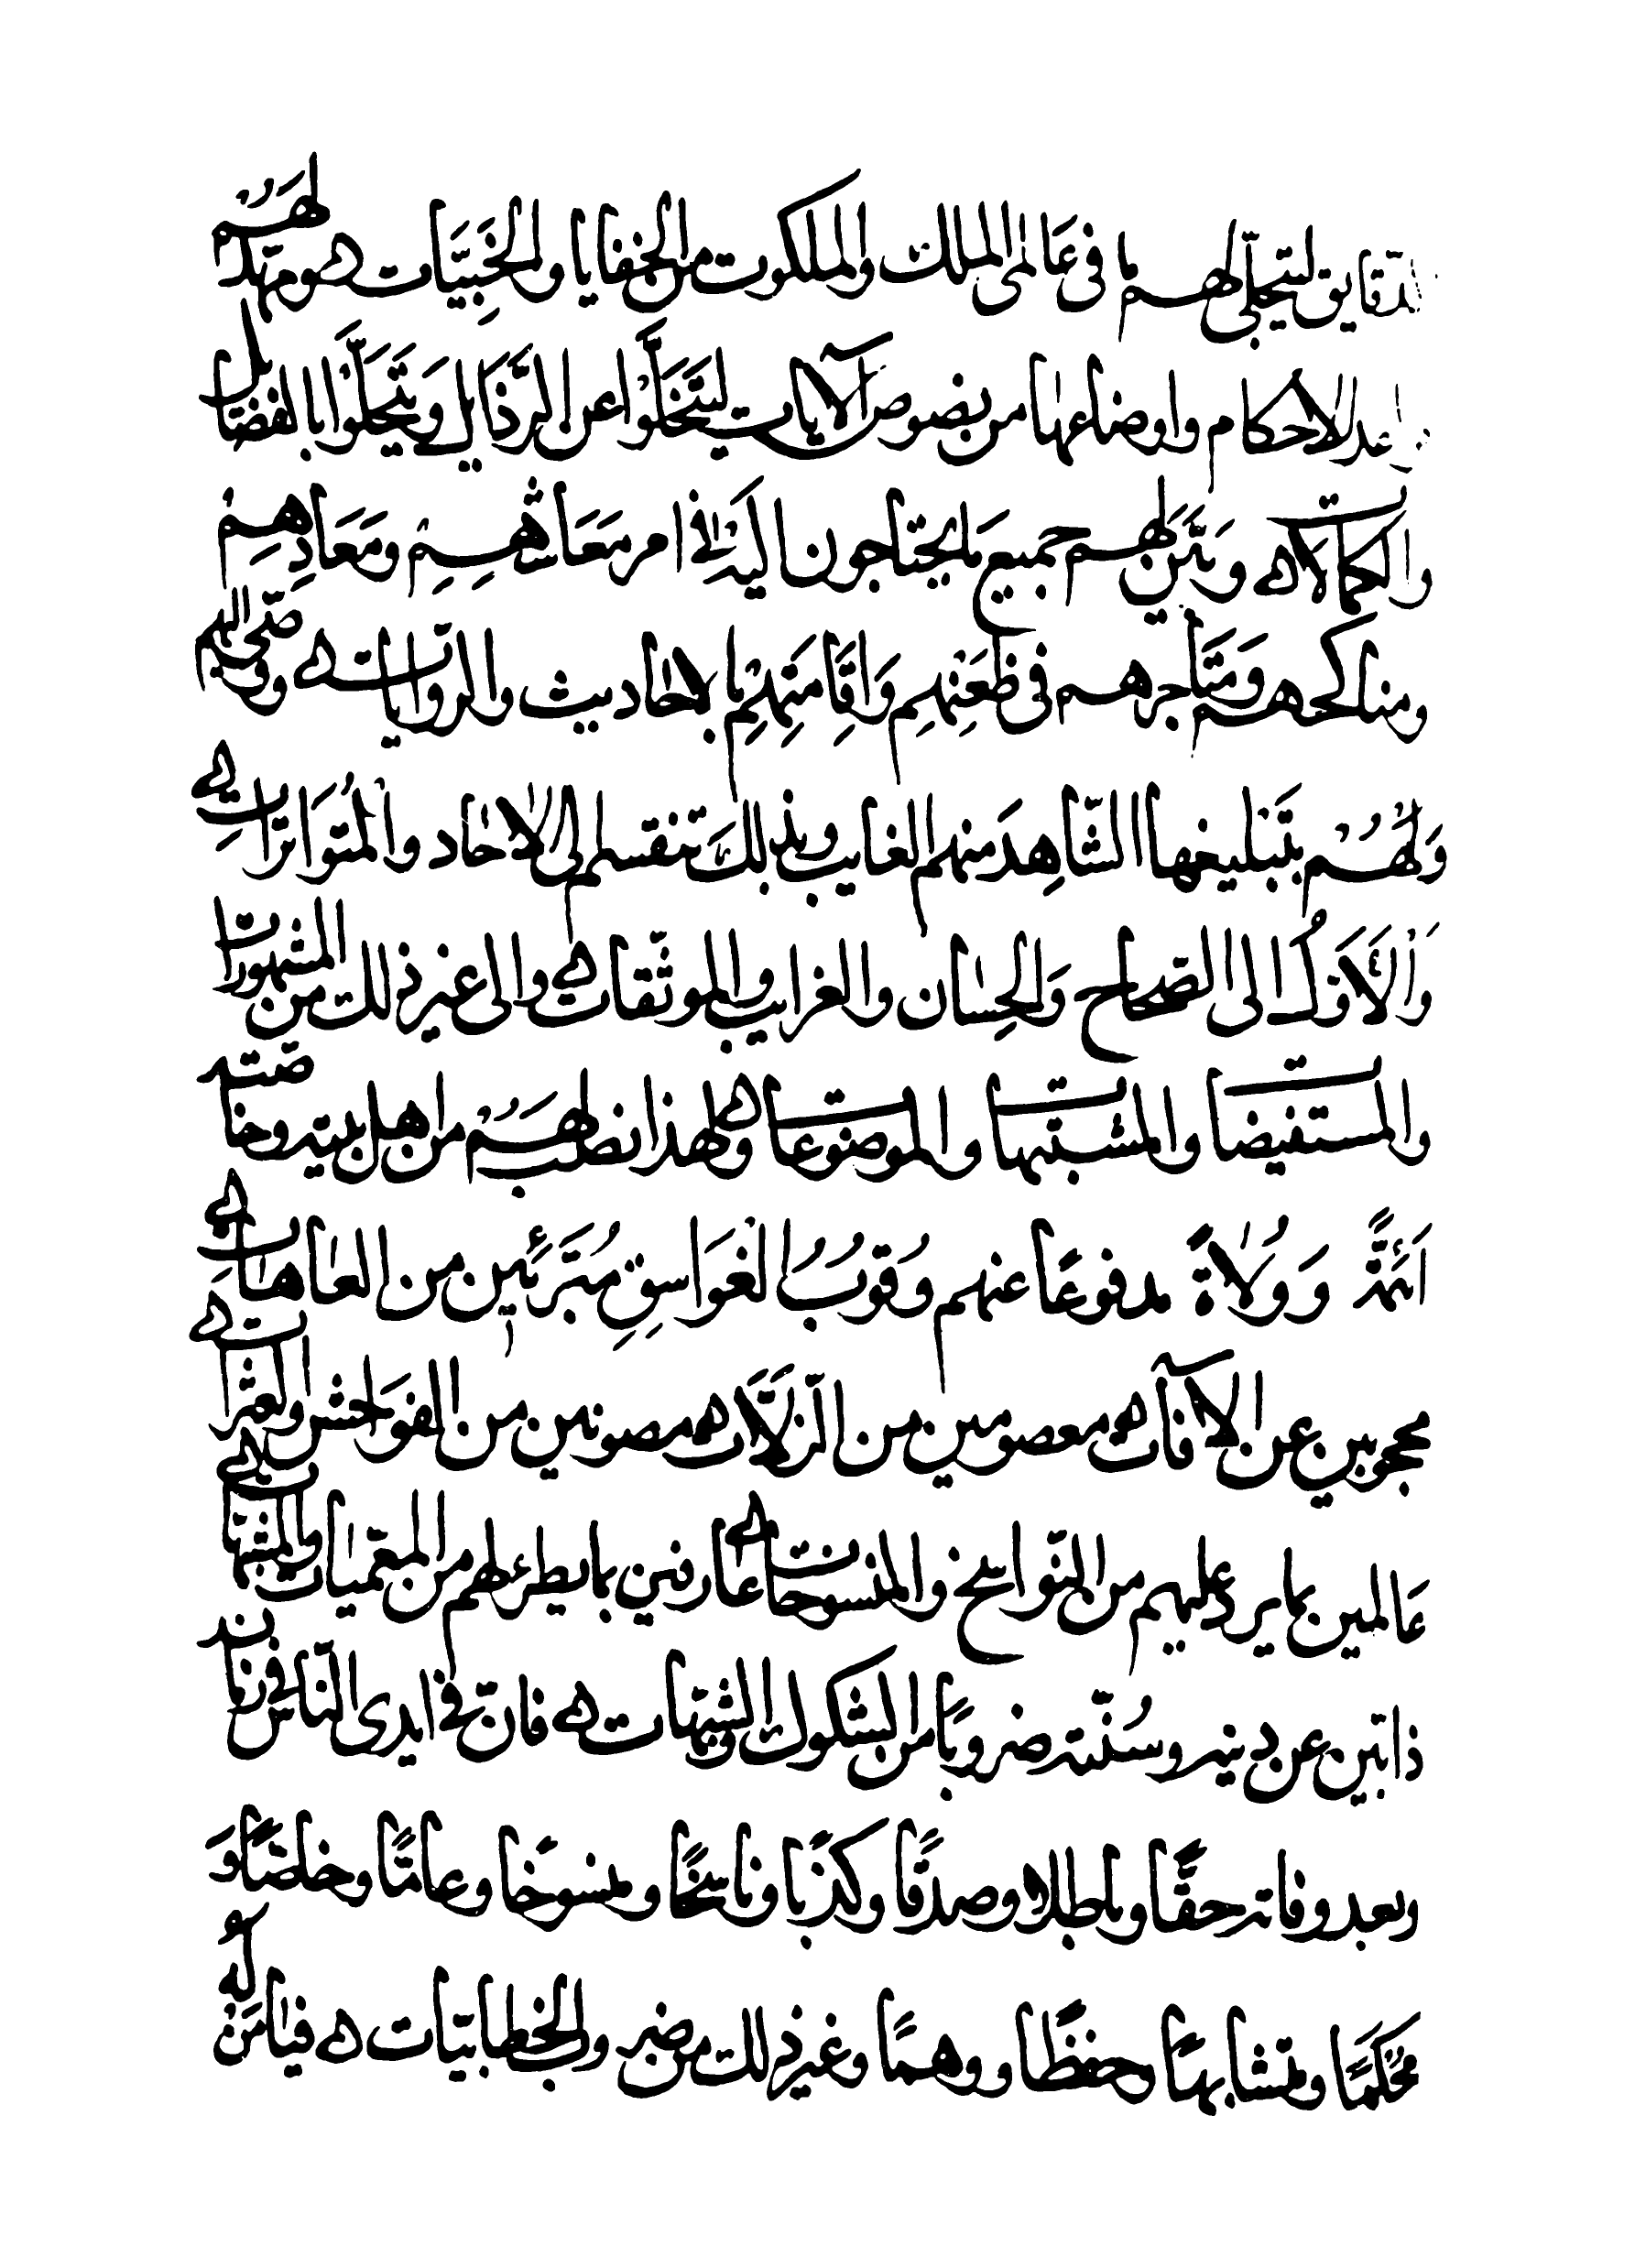 الدقايق ليتجلى لهم ما فى عالمى الملك والملكوت من الخفايا والخَبِيَّات ه ومهّد لهُم
الاحكام واوضاعها من نصوص الآيات ليَتَخَلَّوْا عن الرَّذَايل وَيَتَحَلَّوْا بالفضَايل
والكمالات ه وبَيَّن لهم جميع مَا يحتاجون اليَه فى امر مَعَاشِهِمْ ومَعَادِهِمْ
ومناكحهم ومَتَاجرهم فى ظَعْنِهِم وَاِقَامَتِهِمْ بالاحاديث والروايات ه وصّى اليهم
وَلَهُمْ بتَبليغها الشّاهِدَ منهم الغايب وبذلكَ تنقسم الى الاحاد والمُتوَاترَاتِ ه
وَالاَوَّلُ الى الصّحاح وَالحِسَان والغرايب والموثّقات ه والى غير ذلك من المشهورات
والمستفيضات والمشتبهات والموضوعات ه ولهذا نصب لهَمُ من اهل بيته وخاصّته
اَئمَّةً وَوُلاٰةً مدفوعًا عنهم وُقوبُ الغَوَاسِقِ مُبَرَّئين من العاهات ه
محجوبين عن الآفات ه معصومين من الزلاَّت ه مصونين من الفوَاحش والعثرات ه
عَالمين بما يرد عليهم من النّواسخ والمنسوخات ه عَارفين بما يطرء لهم من المعمّيات والمشتبهات ه
ذابّين عن دينه وسُنّته ضروبًا من الشكوك والشبهات ه فان فى ايدى النّاس فى زمانه
وبعد وفاته حقًّا وباطلا وصدقًا وكذبًا وناسخًا ومنسوخًا وعامًّا وخاصًّا وَ
محكمًا ومتشابهًا وحفظًا ووهمًا وغير ذلك من ضبر والخطابيّات ه فيَا مَنْ لَهُ